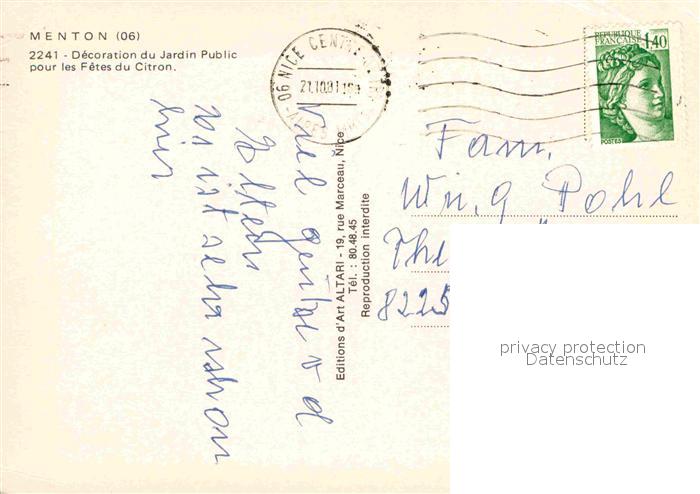 MENTON (06)
2241 - Décoration du Jardin Public
pour les Fêtes du Citron.
06 NICE CENTRE
21.10.81
ALPES
REPUBLIQUE
FRANÇAISE
1,40
POSTES
Editions d'Art ALTARI - 19, rue Marceau, Nice
Tél. : 80.48.45
Reproduction interdite
Viel v d
Eltern
ist sehr schön
hier
Fam.
W u. g Pohl
The
8225
privacy protection
Datenschutz